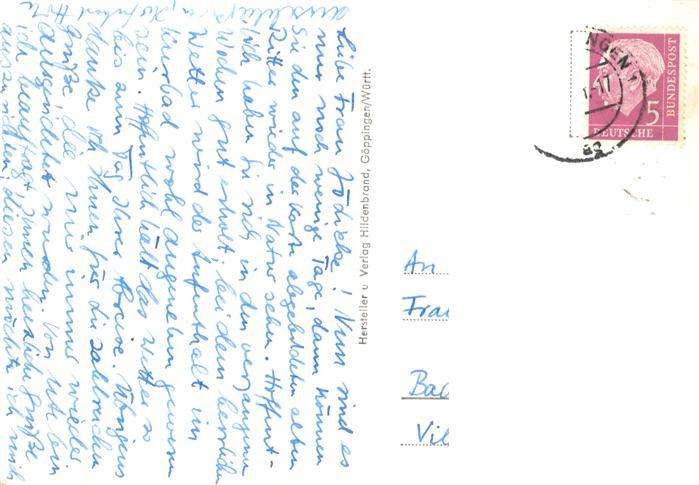 Liebe Frau Jödicke! Nun sind es
nur noch wenige Tage, dann können
Sie den auf der Karte abgebildeten alten
Ritter wieder in Natur sehen. Hoffent-
lich haben Sie sich in den vergangenen
Wochen gut erholt, bei dem herrlichen
Wetter wird der Aufenthalt im
bad wohl angenehm gewesen
sein. Hoffentlich hält das Wetter so
bis zum Tag Ihrer Abreise. Übrigens
danke ich Ihnen für die zahlreichen
Grüße die mir immer wieder
ausgerichtet wurden. Von Ute bin
ich beauftragt Ihnen herzliche Grüße
auszurichten, diesen möchte ich mich
anschließen,
Hersteller u Verlag Hildenbrand, Göppingen/Württ.
NGEN
5
DEUTSCHE
BUNDESPOST
An
Frau
Bad
Vil